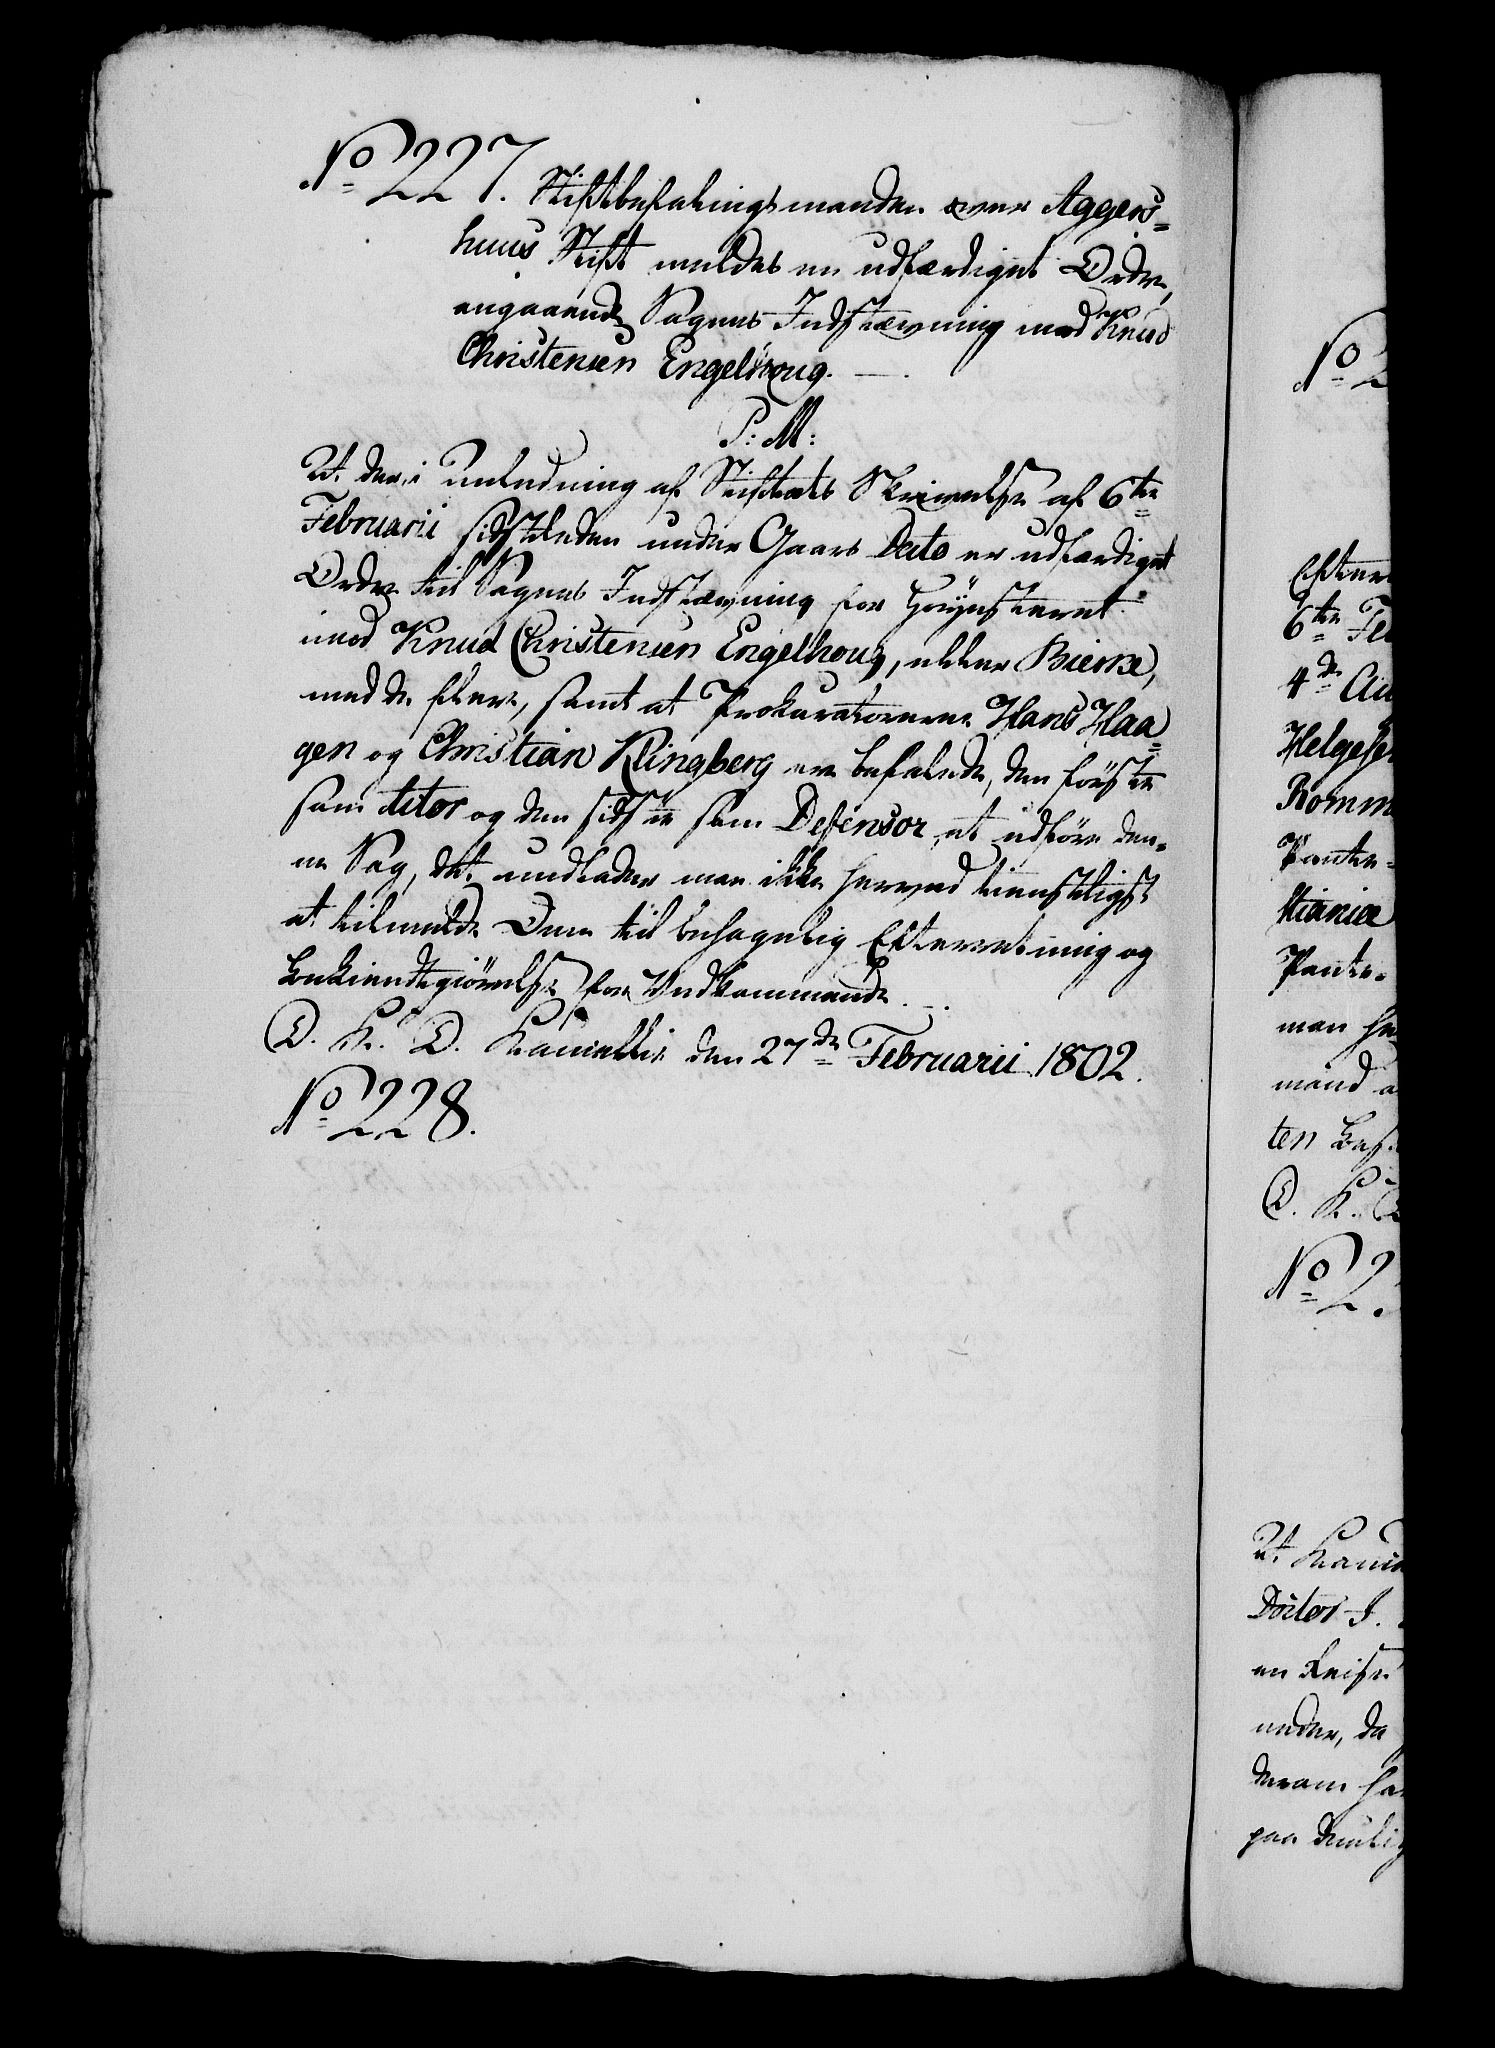 No 227. Stiftbefalingsmanden over Aggers=
huus Stift meldes en udfærdiget Ordre,
angaaende Sagens Indstævning mod Knud
Christensen Engelhoug. —.
P: M:
At der, i Anledning af Stiftets Skrivelse af 6te
Februarii sidstleden under Gaars Dato er udfærdiget
Ordre til Sagens Indstævning for Høyesteret
imod Knud Christensen Engelhoug, eller Bierke,
med de flere, samt at Prokuratorerne Hans Haa=
gen og Christian Klingberg ere befalede, den förste
som Actor og den sidste som Defensor, at udföre den=
ne Sag, det undlader man ikke herved tienstligst
at tilmelde Dem til behagelig Efterretning og
Bekiendtgiörelse for Vedkommende. —.
D. K. D. Kancellie den 27de Februarii 1802.
No 228.
No 2
Efter
6te Fe
4de Au
Helgese
Romm
Pante=
stiania
Pante=
man he
mand a
ten
D. K.
No 2
At
Doctor J.
en Reise
under, da
derom ha
paa